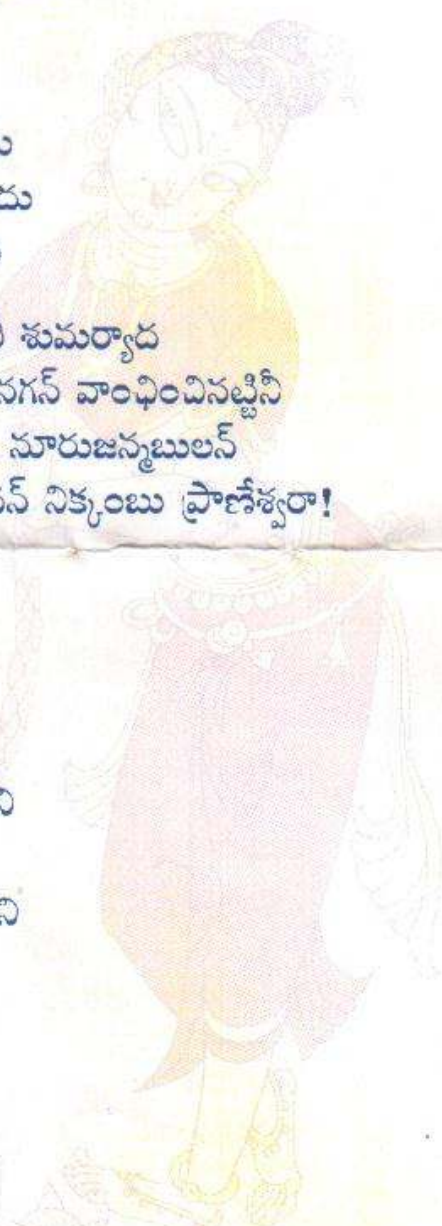 దు
శుమర్యాద
నగన్ వాంఛించినట్టినీ
నూరుజన్మబులన్
న్ నిక్కంబు ప్రాణేశ్వరా!
ని